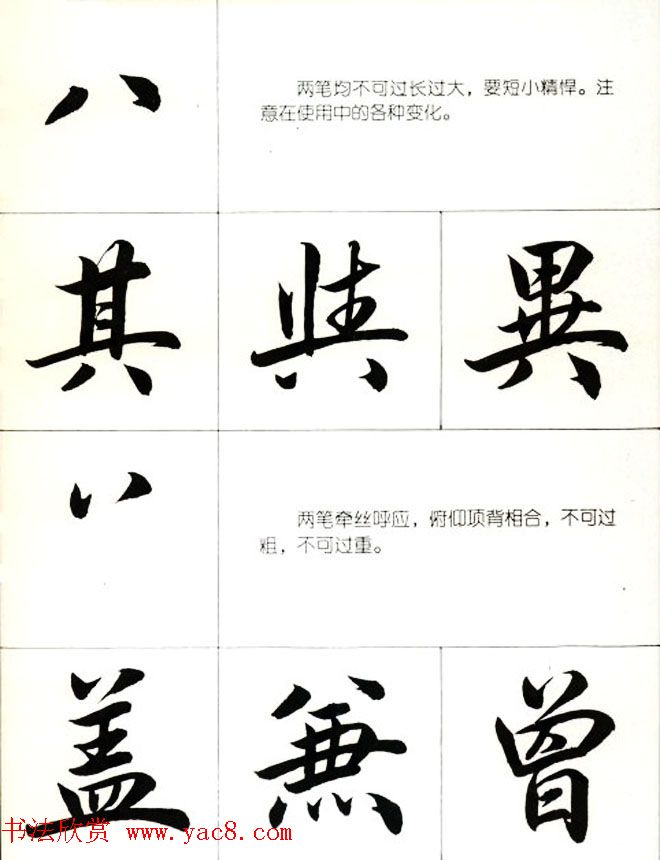 八
两笔均不可过长过大，要短小精悍。注
意在使用中的各种变化。
其 典 異
丷
两笔牵丝呼应，俯仰项背相合，不可过
粗，不可过重。
盖 兼 曾
书法欣赏 www.yac8.com